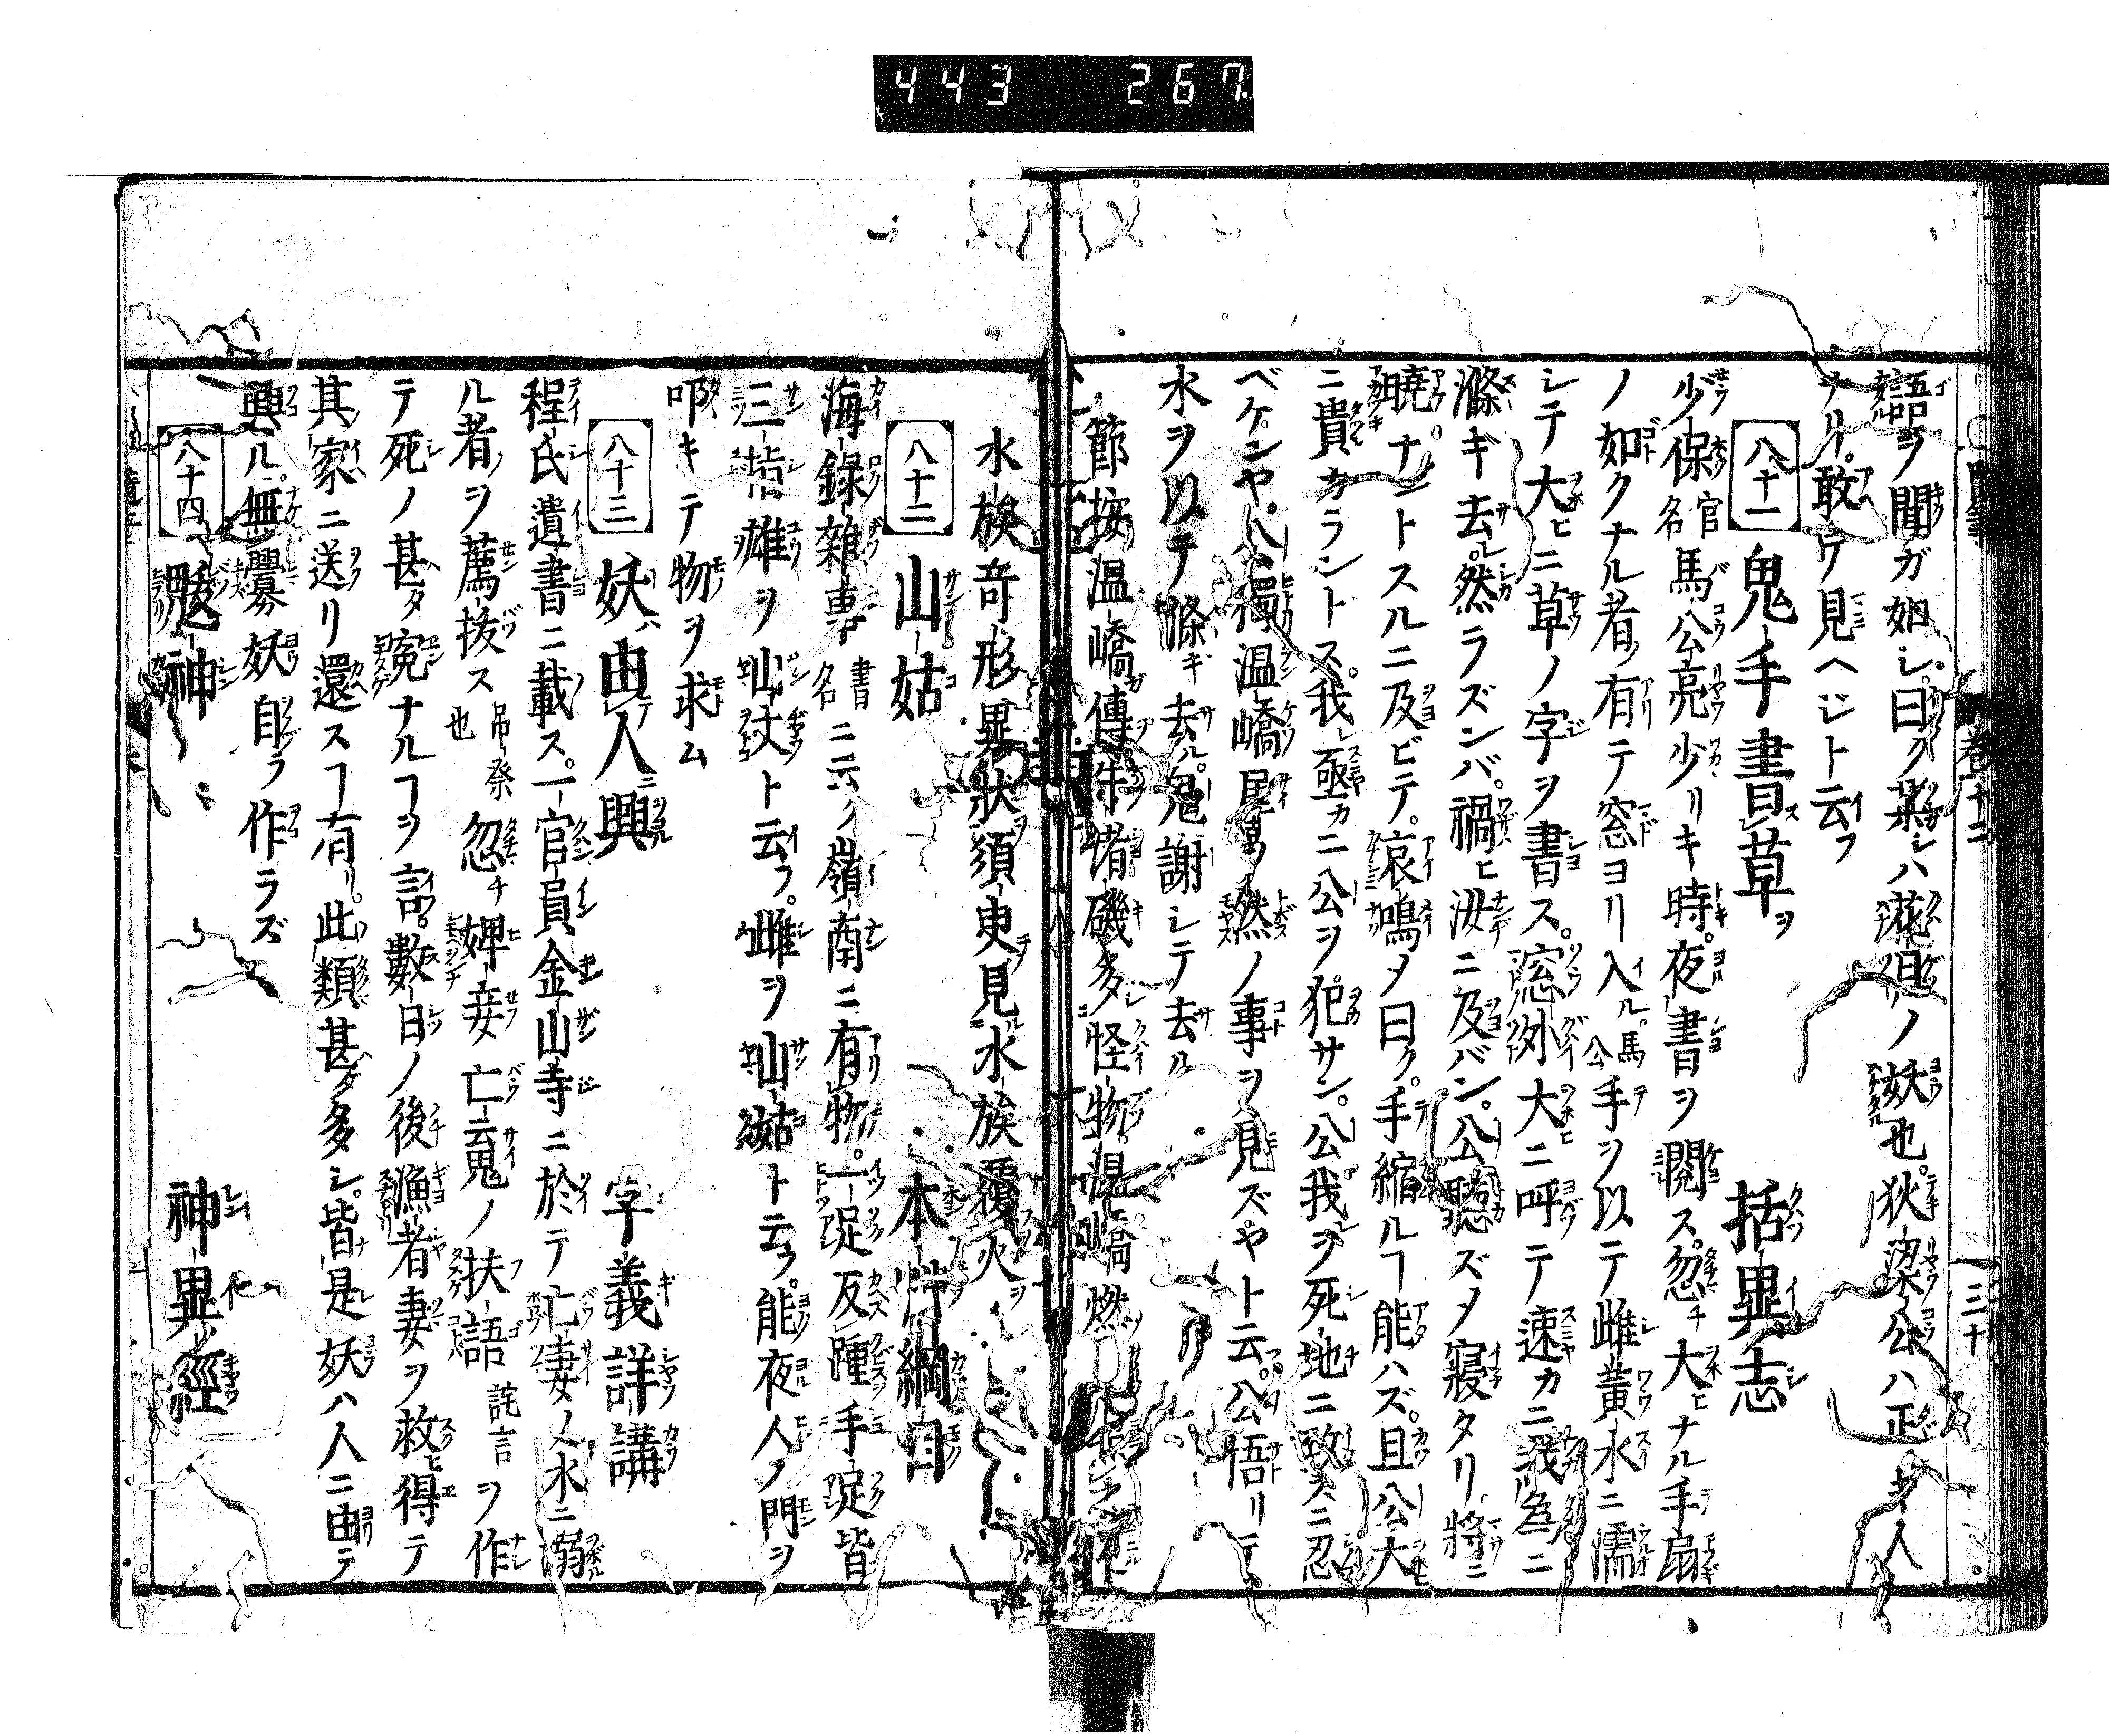 443 267
語ヲ聞ガ如シ曰ク某シハ花ノ妖也狄梁公ハ正キ人
ナリ敢テ見ヘジト云フ
八十一 鬼手書草ヲ 括異志
少保官名馬公亮少リキ時夜書ヲ閲ス忽チ大ヒナル手扇
ノ如クナル者有テ窓ヨリ入ル馬公手ヲ以テ雌黄水ニ濡
シテ大ヒニ草ノ字ヲ書ス窓外大ニ呼テ速カニ我為ニ
滌ギ去レ然ラズンバ禍ヒ汝ニ及バン公聴ズメ寝タリ将ニ
暁ナントスルニ及ビテ哀鳴メ曰ク手縮ルヿ能ハズ且公大
ニ貴カラントス我レ亟カニ公ヲ犯サン公我ヲ死地ニ致スニ忍
ベケンヤ公獨温嶠犀ノ燃ノ事ヲ見ズヤト云公悟リテ
水ヲ以テ滌ギ去ル鬼謝シテ去ル
節按温嶠傳牛渚磯多怪物温嶠燃犀照之
水族奇形異狀須臾見水族覆火ヲ
八十二 山姑 本草綱目
海録雑事書名ニ云ク嶺南ニ有物一足反踵手足皆
三指雄ヲ山丈ト云フ雌ヲ山姑ト云フ能夜人ノ門ヲ
叩キテ物ヲ求ム
八十三 妖由人興 字義詳講
程氏遺書ニ載ス一官員金山寺ニ於テ亡妻ノ水ニ溺
ル者ヲ薦抜ス吊祭也忽チ婢妾亡魂ノ扶語詫言ヲ作
テ死ノ甚タ寃ナルヿヲ言数日ノ後漁者妻ヲ救ヒ得テ
其家ニ送リ還スヿ有リ此類甚ダ多シ皆是レ妖ハ人ニ由テ
興ル無釁妖自ラ作ラズ
八十四 魃神 神異經